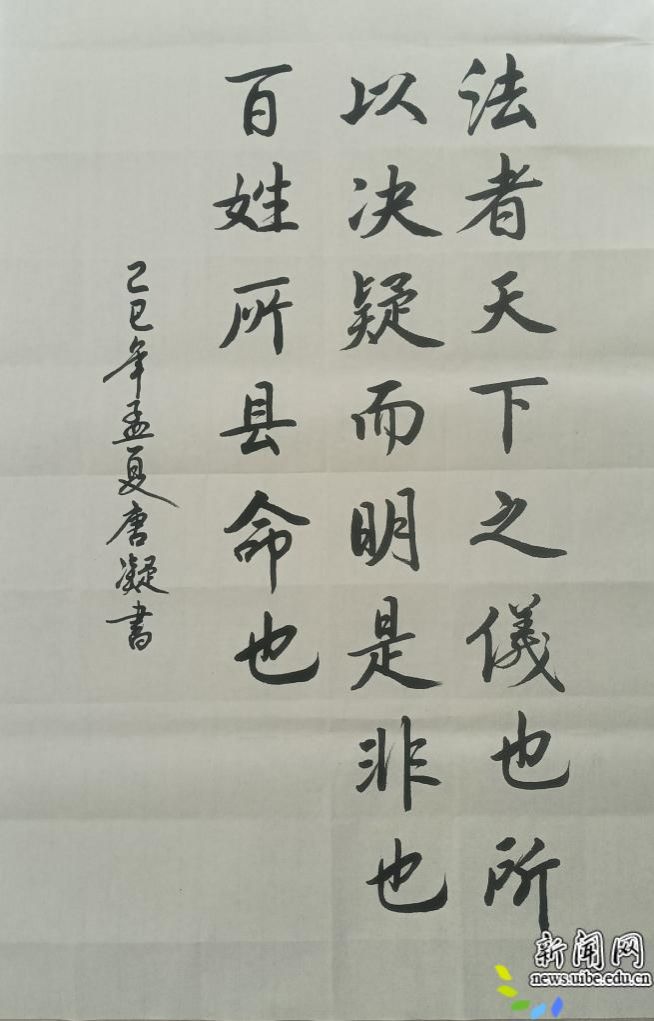 法者天下之儀也所
以决疑而明是非也
百姓所县命也
乙巳年孟夏唐凝书
新闻网
news.uibe.edu.cn